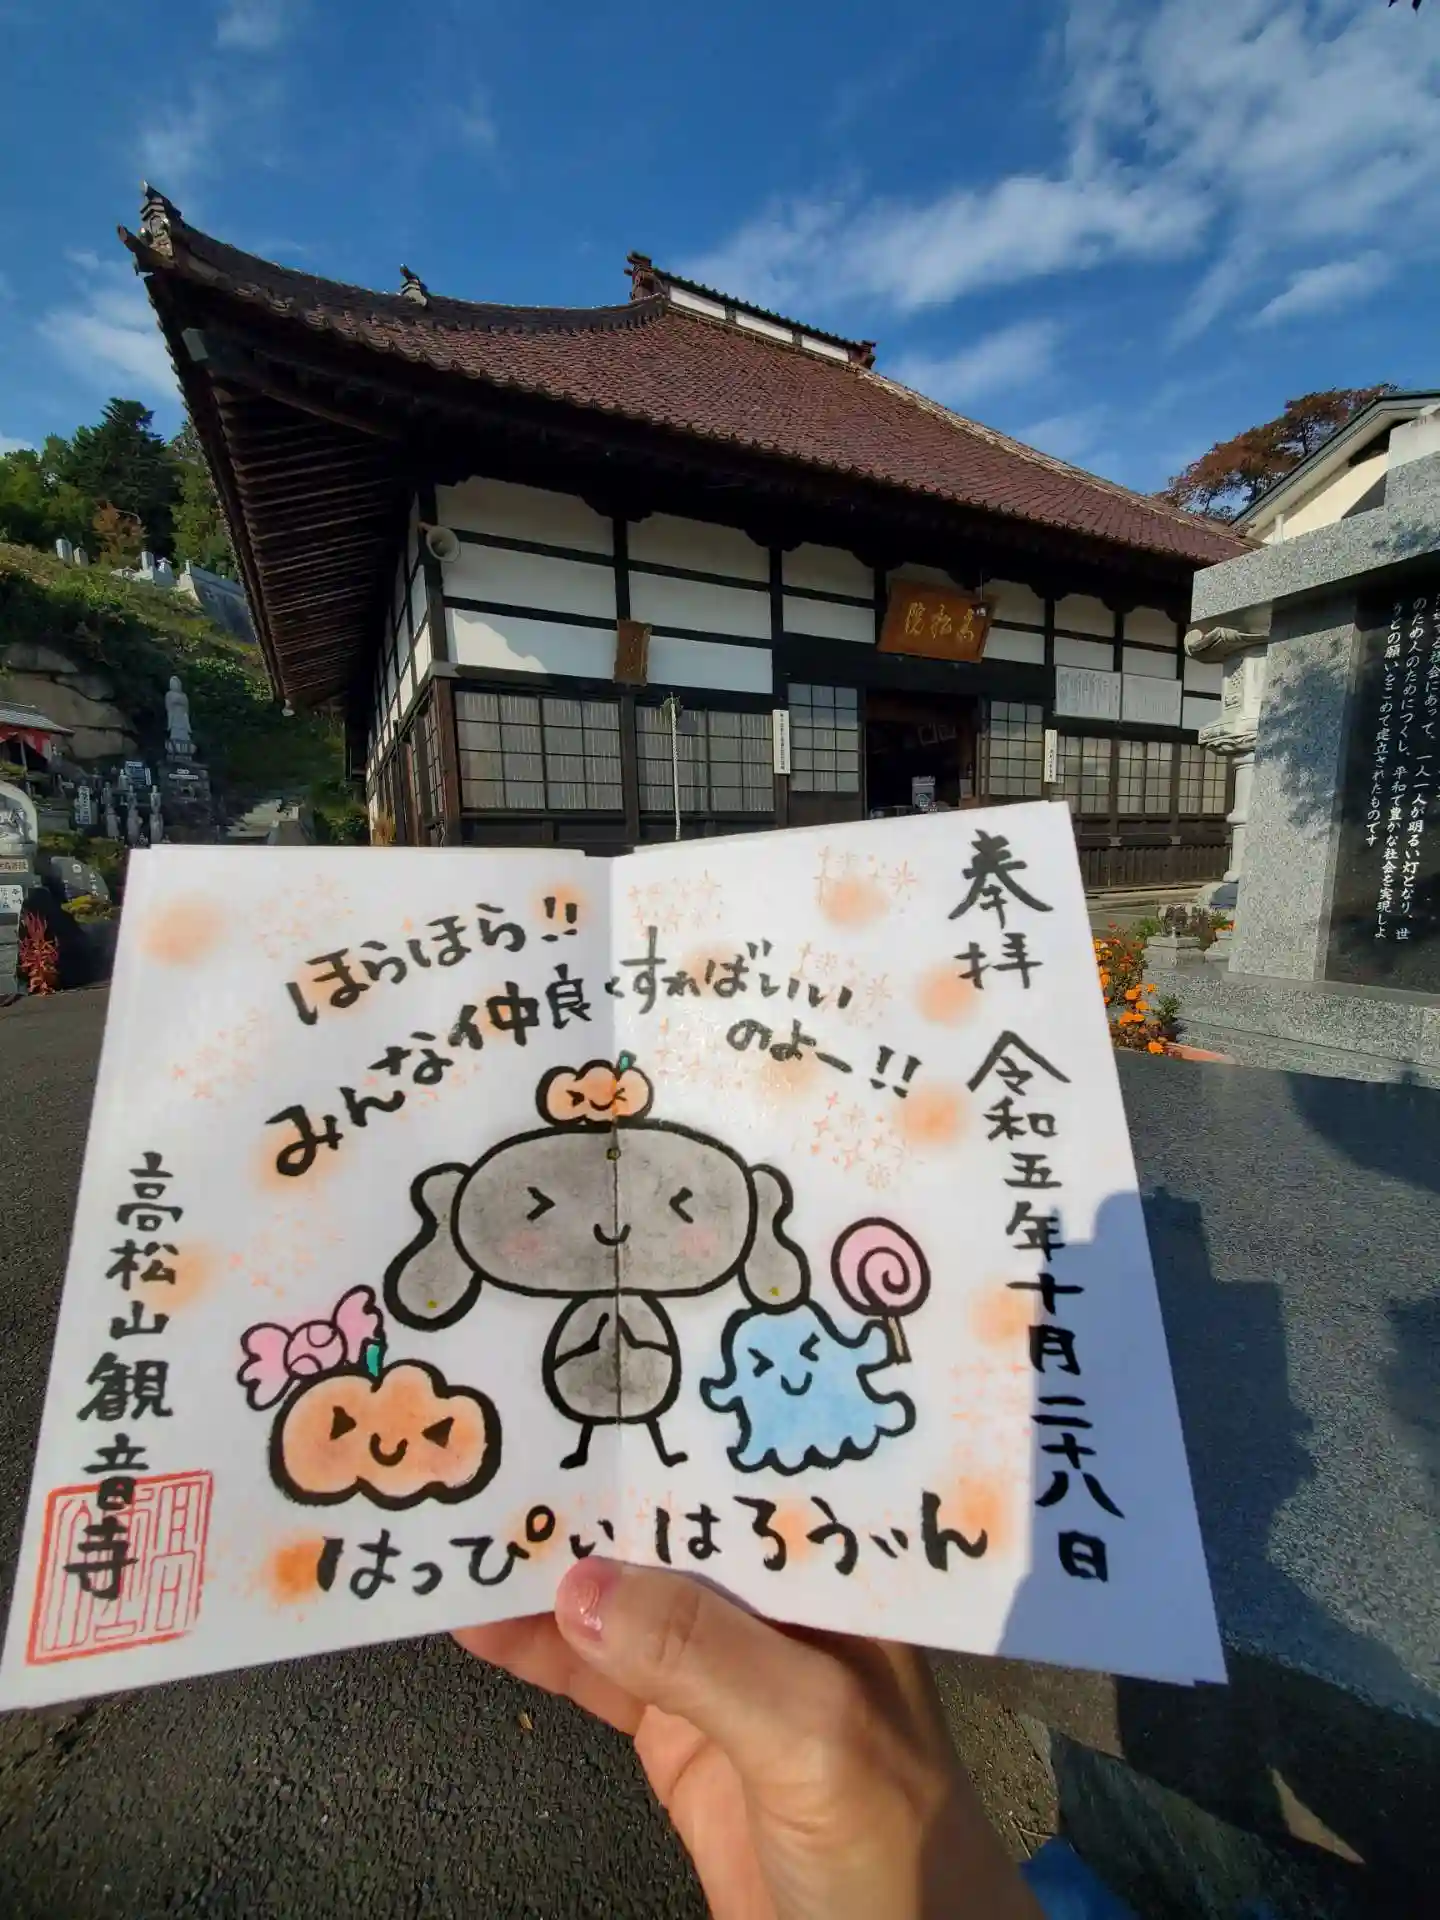 高松院
のため人のためにつくし、平和で豊かな社会を実現しよ
うとの願いをこめて建立されたものです
奉拝
令和五年十月二十八日
ほらほら!!
みんな仲良くすればいい
のよー!!
はっぴぃ はろうぃん
高松山観音寺